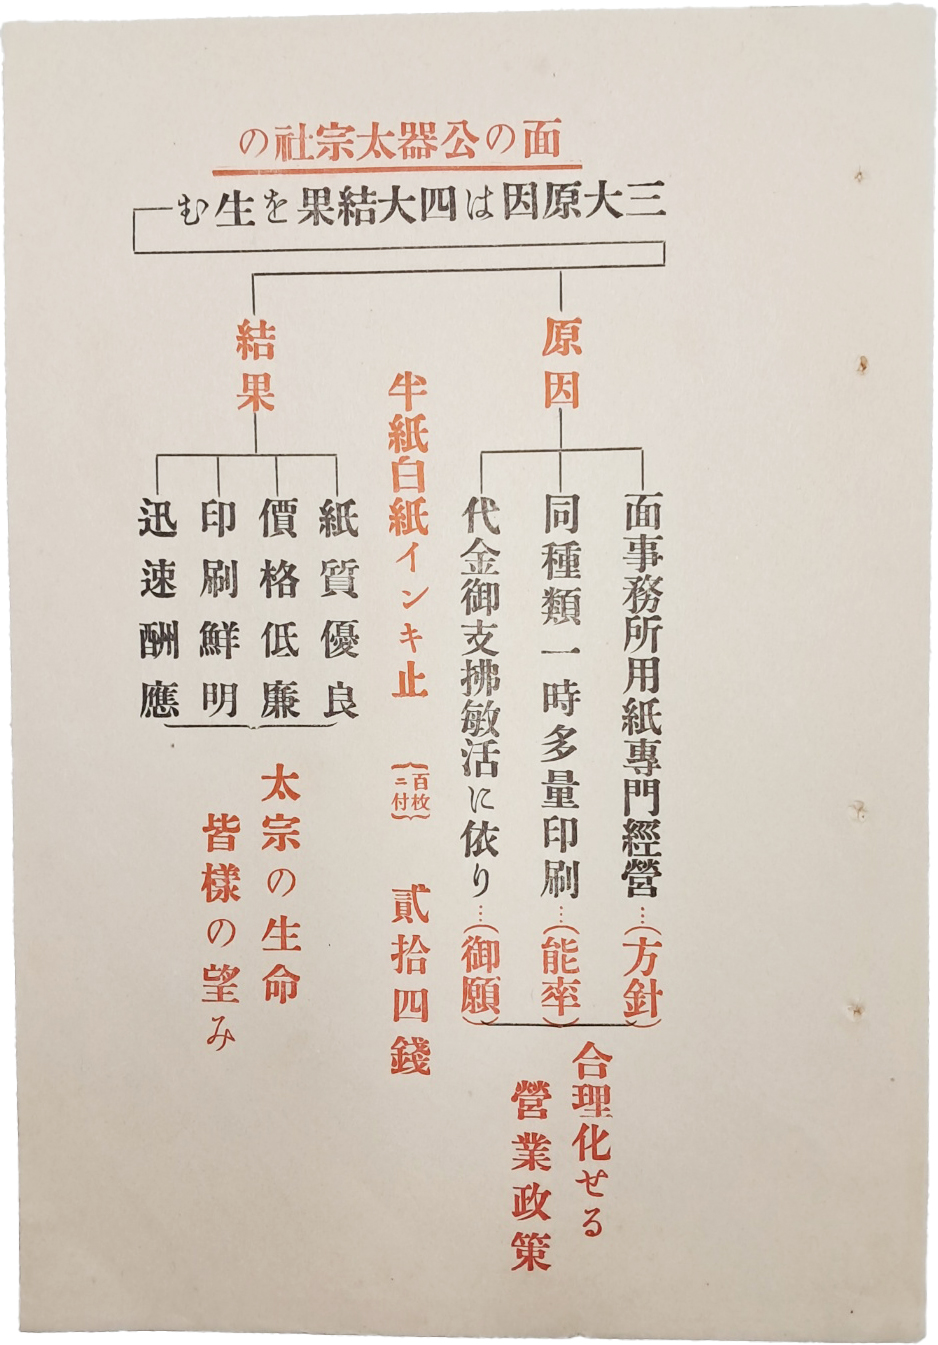 面の公器太宗社の
三大原因は四大結果を生む
原因
面事務所用紙專門經營…(方針)
同種類一時多量印刷…(能率)
代金御支拂敏活に依り…(御願)
合理化せる
營業政策
半紙白紙インキ止 (百枚ニ付) 貳拾四錢
結果
紙質優良
價格低廉
印刷鮮明
迅速酬應
太宗の生命
皆樣の望み